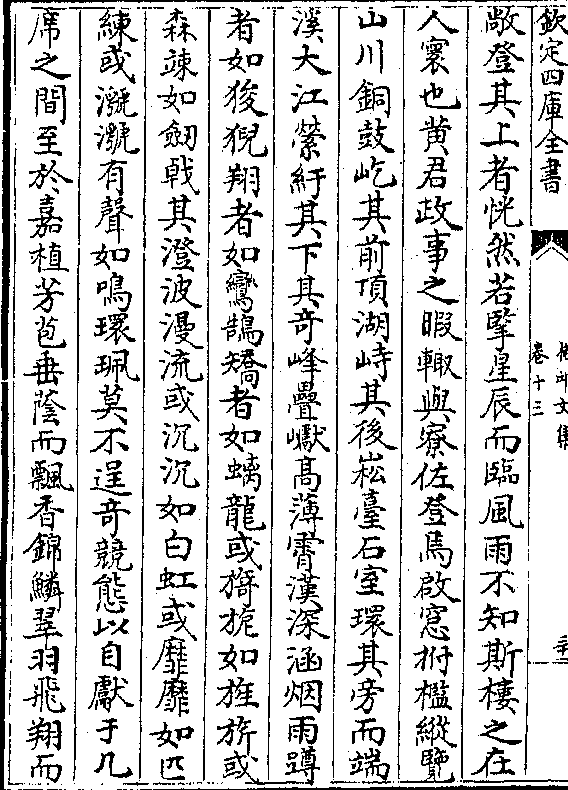 欽定四庫全書
卷十三
敞登其上者恍然若擥星辰而臨風雨不知斯樓之在
人寰也黄君政事之暇輙與寮佐登焉啟窓拊檻縱覽
山川銅鼓屹其前頂湖峙其後崧臺石室環其旁而端
溪大江縈紆其下其奇峰疊巘髙薄霄漢深涵烟雨蹲
者如狻猊翔者如鸞鵠矯者如螭龍或旖旎如旌旂或
森竦如劔㦸其澄波漫流或沉沉如白虹或靡靡如匹
練或㶁㶁有聲如鳴環珮莫不逞奇競態以自獻于几
席之間至於嘉植芳苞垂蔭而飄香錦鱗翠羽飛翔而